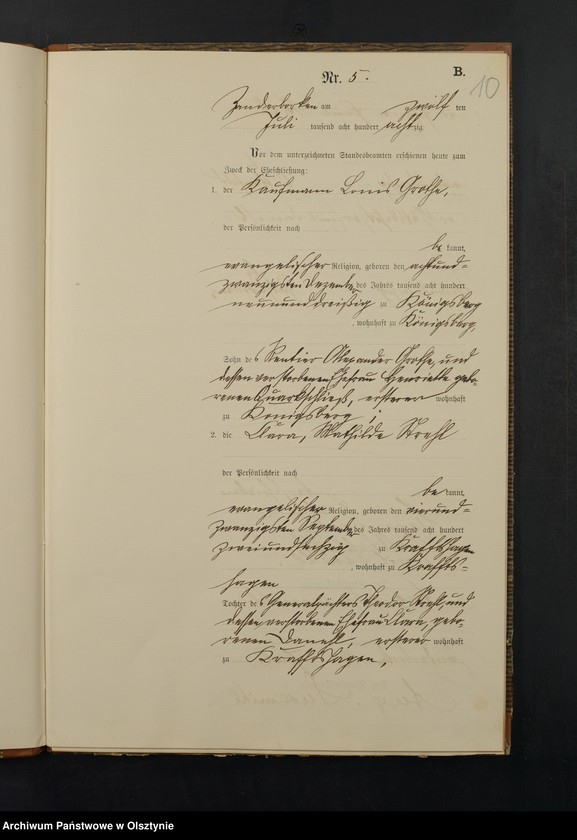 B.
Nr. 5.
10
Zanderborken am zwölf ten
Juli tausend acht hundert achtzig
Vor dem unterzeichneten Standesbeamten erschienen heute zum
Zweck der Eheschließung:
1. der Kaufmann Louis Grothe,
der Persönlichkeit nach
be kannt,
evangelischer Religion, geboren den achtund=
zwanzigsten Dezember des Jahres tausend acht hundert
neununddreißig zu Königsberg
, wohnhaft zu Königsberg,
Sohn des Rentier Alexander Grothe, und
dessen verstorbenen Ehefrau Henriette gebo-
renen, ersterer wohnhaft
zu Königsberg;
2. die Clara, Mathilde Strehl
der Persönlichkeit nach
be kannt,
evangelischer Religion, geboren den vierund=
zwanzigsten September des Jahres tausend acht hundert
zweiundsechzig zu Kraftshagen
, wohnhaft zu Krafts=
hagen
Tochter des Generalpächters Theodor Strehl, und
dessen verstorbenen Ehefrau Clara, gebo-
renen, ersterer wohnhaft
zu Kraftshagen,
Archiwum Państwowe w Olsztynie